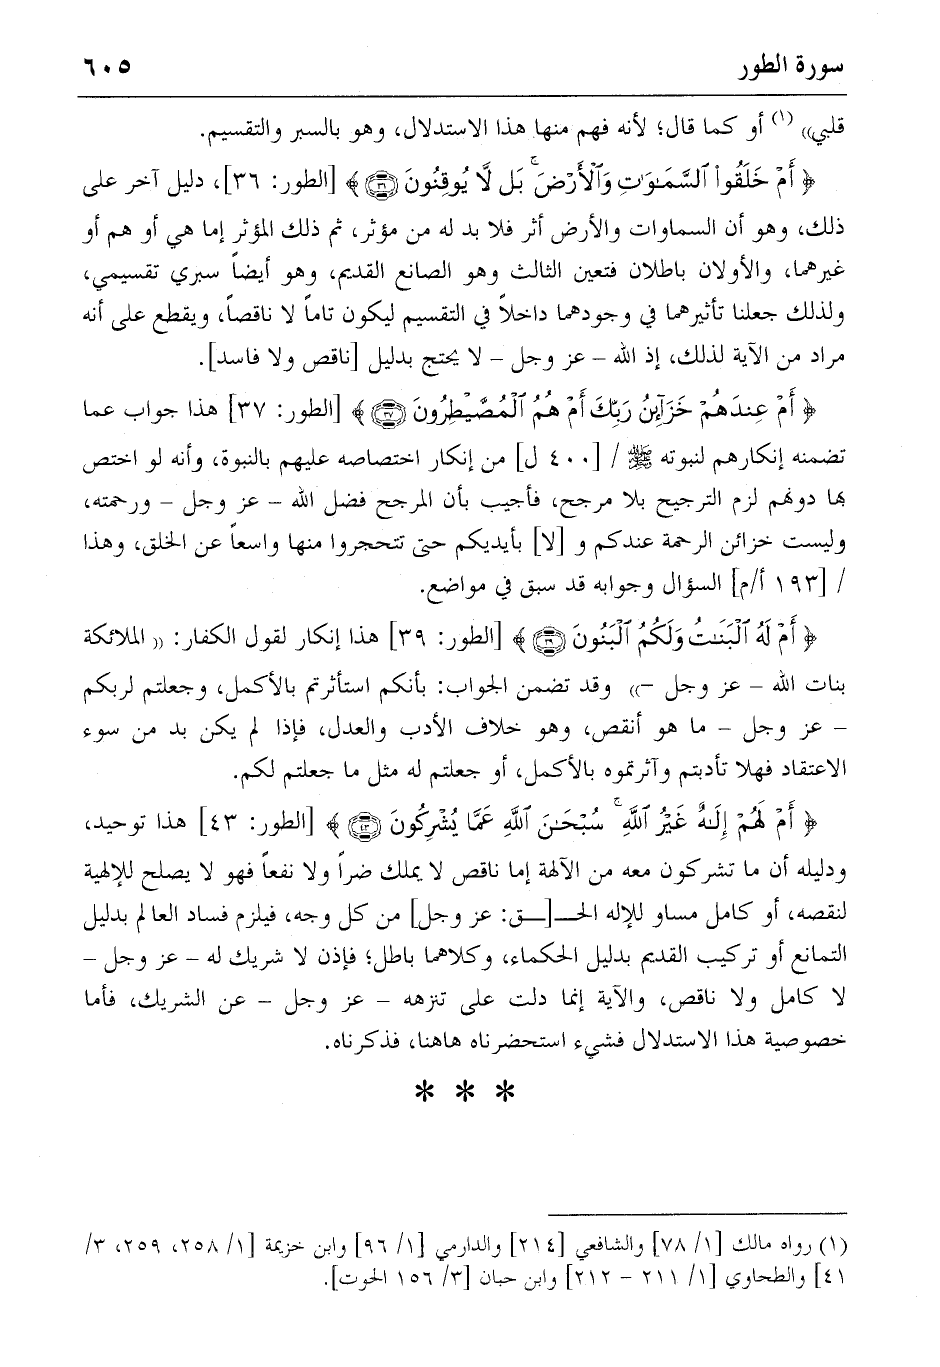 سورة الطور ٦٠٥
قلبي)) (١) أو كما قال؛ لأنه فهم منها هذا الاستدلال، وهو بالسبر والتقسيم.
﴿ أَمْ خَلَقُوا۟ ٱلسَّمَـٰوَٰتِ وَٱلْأَرْضَ ۚ بَل لَّا يُوقِنُونَ ٣٦ ﴾ [الطور: ٣٦]، دليل آخر على
ذلك، وهو أن السماوات والأرض أثر فلا بد له من مؤثر، ثم ذلك المؤثر إما هي أو هم أو
غيرهما، والأولان باطلان فتعين الثالث وهو الصانع القديم، وهو أيضاً سبري تقسيمي،
ولذلك جعلنا تأثيرهما في وجودهما داخلاً في التقسيم ليكون تاماً لا ناقصاً، ويقطع على أنه
مراد من الآية لذلك، إذ الله – عز وجل – لا يحتج بدليل [ناقص ولا فاسد].
﴿ أَمْ عِندَهُمْ خَزَآئِنُ رَبِّكَ أَمْ هُمُ ٱلْمُصَۣيْطِرُونَ ٣٧ ﴾ [الطور: ٣٧] هذا جواب عما
تضمنه إنكارهم لنبوته ﷺ / [٤٠٠ ل] من إنكار اختصاصه عليهم بالنبوة، وأنه لو اختص
بها دونهم لزم الترجيح بلا مرجح، فأجيب بأن المرجح فضل الله – عز وجل – ورحمته،
وليست خزائن الرحمة عندكم و [لا] بأيديكم حتى تتحجروا منها واسعاً عن الخلق، وهذا
/ [١٩٣ أ/م] السؤال وجوابه قد سبق في مواضع.
﴿ أَمْ لَهُ ٱلْبَنَـٰتُ وَلَكُمُ ٱلْبَنُونَ ٣٩ ﴾ [الطور: ٣٩] هذا إنكار لقول الكفار: (( الملائكة
بنات الله – عز وجل –)) وقد تضمن الجواب: بأنكم استأثرتم بالأكمل، وجعلتم لربكم
– عز وجل – ما هو أنقص، وهو خلاف الأدب والعدل، فإذا لم يكن بد من سوء
الاعتقاد فهلا تأدبتم وآثرتموه بالأكمل، أو جعلتم له مثل ما جعلتم لكم.
﴿ أَمْ لَهُمْ إِلَـٰهٌ غَيْرُ ٱللَّهِ ۚ سُبْحَـٰنَ ٱللَّهِ عَمَّا يُشْرِكُونَ ٤٣ ﴾ [الطور: ٤٣] هذا توحيد،
ودليله أن ما تشركون معه من الآلهة إما ناقص لا يملك ضراً ولا نفعاً فهو لا يصلح للإلهية
لنقصه، أو كامل مساو للإله الحـ[ـق: عز وجل] من كل وجه، فيلزم فساد العالم بدليل
التمانع أو تركيب القديم بدليل الحكماء، وكلاهما باطل؛ فإذن لا شريك له – عز وجل –
لا كامل ولا ناقص، والآية إنما دلت على تنزهه – عز وجل – عن الشريك، فأما
خصوصية هذا الاستدلال فشيء استحضرناه هاهنا، فذكرناه.
* * *
(١) رواه مالك [١/ ٧٨] والشافعي [٢١٤] والدارمي [١/ ٩٦] وابن خزيمة [١/ ٢٥٨، ٢٥٩، ٣/
٤١] والطحاوي [١/ ٢١١ – ٢١٢] وابن حبان [٣/ ١٥٦ الحوت].